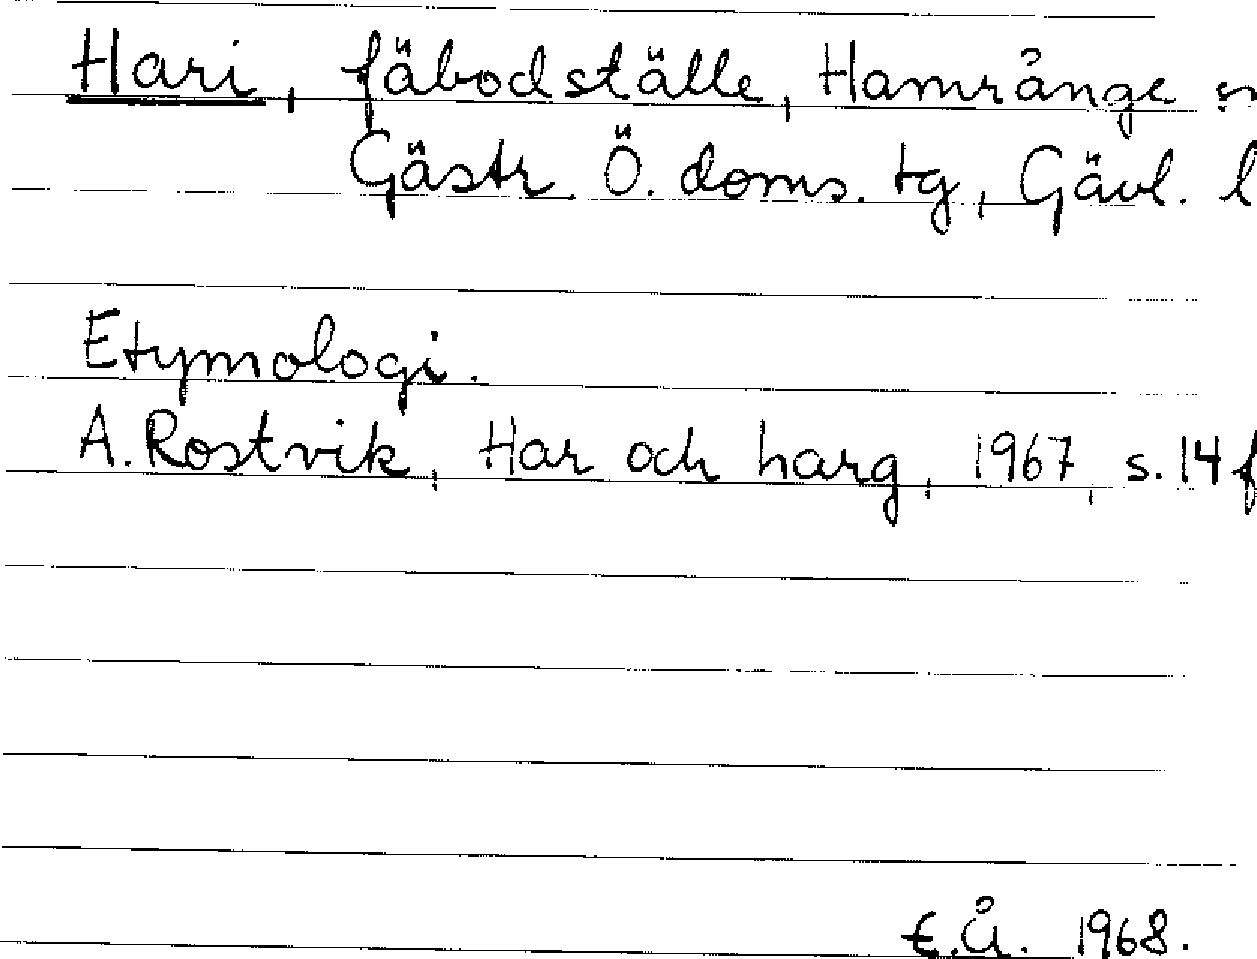 Hari, fäbodställe, Hamrånge sn
Gästr. Ö. doms. tg, Gävl. l
Etymologi.
A. Rostvik, Har och harg, 1967, s. 14 f
E.Å. 1968.